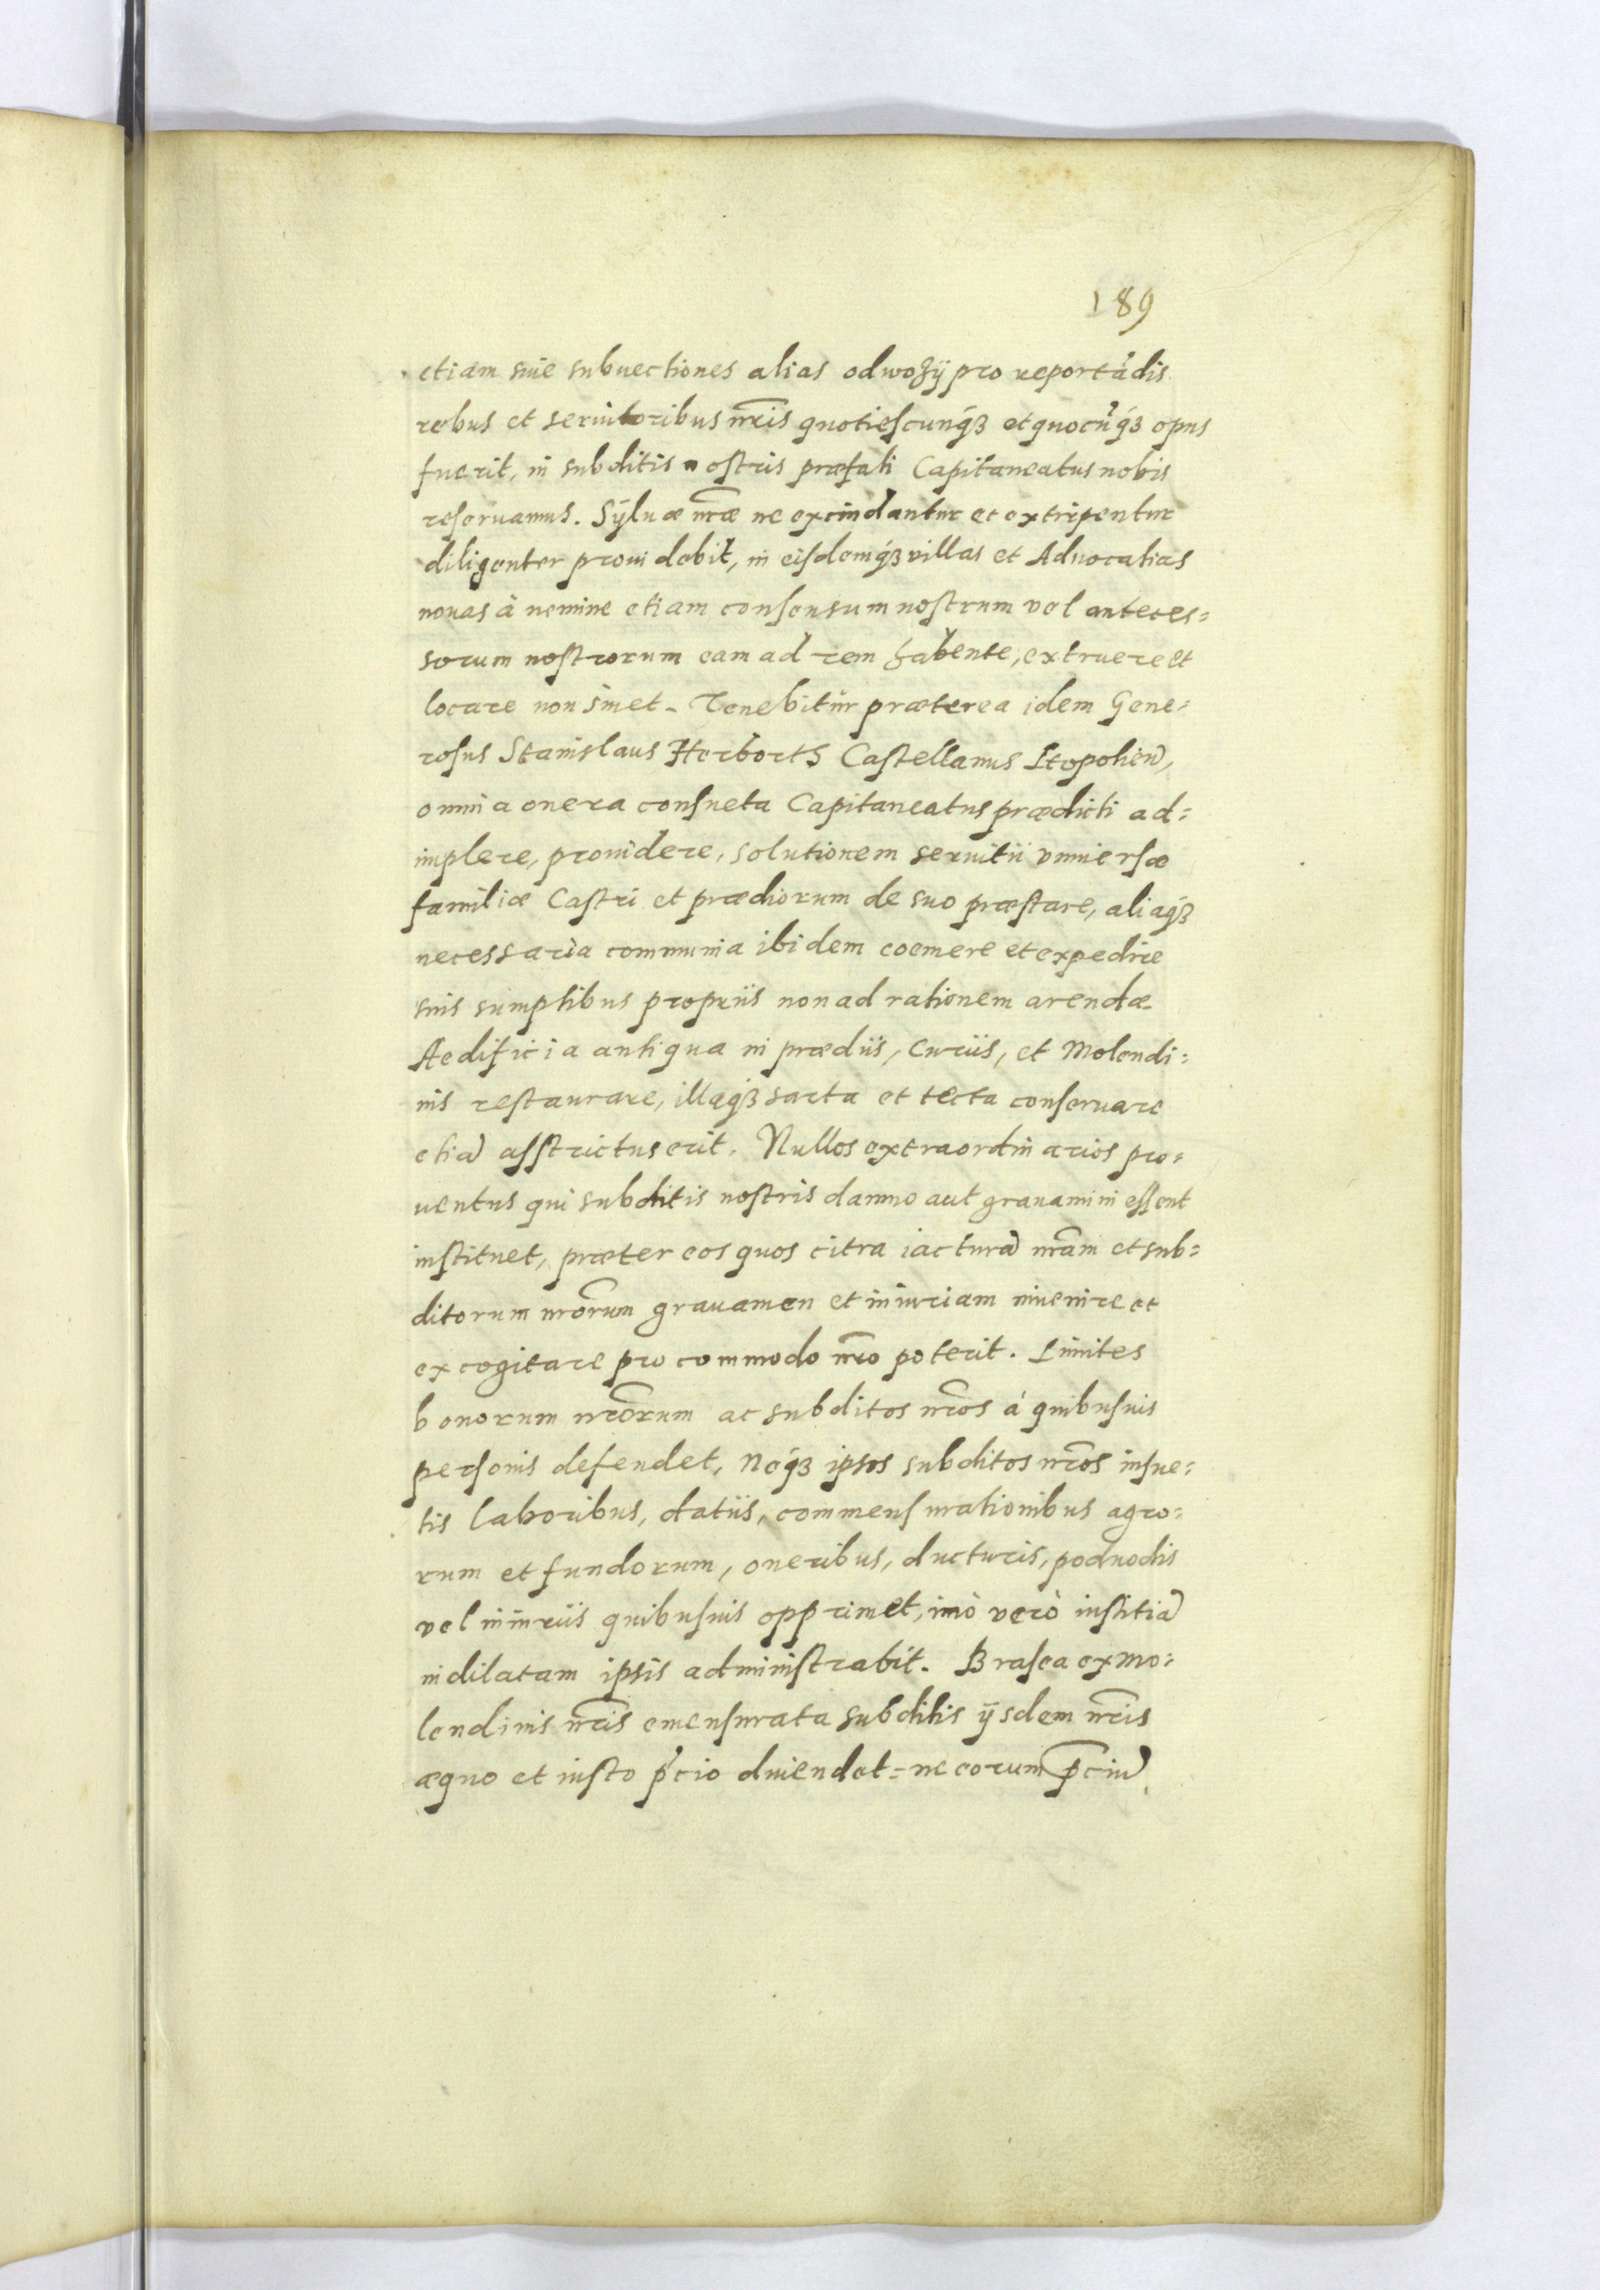 189
etiam siue subuectiones alias odwozÿ pro reportãdis
rebus et seruitoribus nr̃is quotiescunq́ꝫ et quocũq́ꝫ opus
fuerit, in subditis nostris præfati Capitaneatus nobis
reseruamus. Sÿluæ nr̃æ ne excindantur et extirpentur
diligenter prouidebit, in eisdemq́ꝫ villas et Aduocatias
nouas à nemine etiam consensum nostrum vel anteces=
sorum nostrorum eam ad rem habente, extruere et
locare non sinet. Tenebitur præterea idem Gene=
rosus Stanislaus Herborth Castellanus Leopolien̄,
omnia onera consueta Capitaneatus prædicti ad=
implere, prouidere, solutionem seruitii vniuersæ
familiæ Castri et prædiorum de suo præstare, aliaq́ꝫ
necessaria communia ibidem coemere et expedire
suis sumptibus propriis non ad rationem arendæ.
Aedificia antiqua in prædiis, Curiis, et Molendi=
nis restaurare, illaq́ꝫ sarta et tecta conseruare
etiā asstrictus erit. Nullos extraordinarios pro=
uentus qui subditis nostris damno aut grauamini essent
instituet, præter eos quos citra iacturā nr̃am et sub=
ditorum nr̃orum grauamen et iniuriam inuenire et
excogitare pro commodo nr̃o poterit. Limites
bonorum nr̃orum ac subditos nr̃os á quibusuis
personis defendet, Neq́ꝫ ipsos subditos nr̃os insue=
tis laboribus, datiis, commensurationibus agro=
rum et fundorum, oneribus, ducturis, poduodis
vel iniuriis quibusuis opprimet, imò verò iustitiā
indilatam ipsis administrabit. Brasea ex Mo=
lendinis nr̃is emensurata subditis ÿsdem nr̃is
æquo et iusto p̃cio diuendet = ne eorum p̃ciū